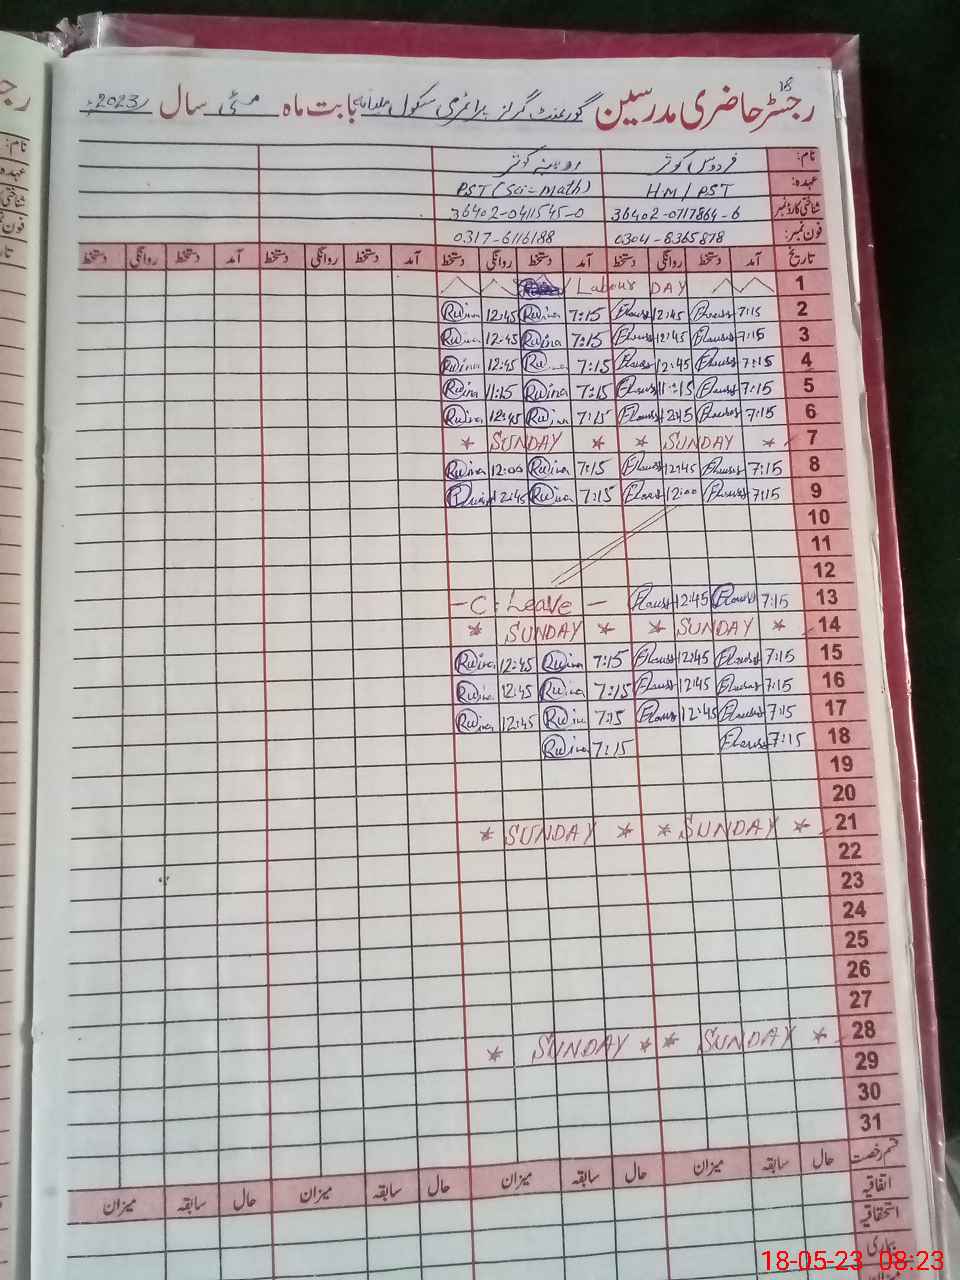 18
رجسٹر حاضری مدرسین گورنمنٹ گرلز پرائمری سکول بابت ماہ مئی سال 2023ء
نام: فردوس کوثر روبینہ کوثر
عہدہ: HM/PST PST (Sci=math)
شناختی کارڈ نمبر 36402-0717864-6 36402-0411545-0
فون نمبر: 0304-8365878 0317-6116188
تاریخ آمد دستخط روانگی دستخط آمد دستخط روانگی دستخط آمد دستخط روانگی دستخط آمد دستخط روانگی دستخط
1 Labour DAY
2 7:15 12:45 7:15 Ruina 12:45 Ruina
3 7:15 12:45 7:15 Ruina 12:45 Ruina
4 7:15 12:45 7:15 Ruina 12:45 Ruina
5 7:15 11:15 7:15 Ruina 11:15 Ruina
6 7:15 12:45 7:15 Ruina 12:45 Ruina
7 * SUNDAY * * SUNDAY *
8 7:15 12:45 7:15 Ruina 12:00 Ruina
9 7:15 12:00 7:15 Ruina 12:45 Ruina
10
11
12
13 7:15 12:45 - C. Leave -
14 * SUNDAY * * SUNDAY *
15 7:15 12:45 7:15 Ruina 12:45 Ruina
16 7:15 12:45 7:15 Ruina 12:45 Ruina
17 7:15 12:45 7:15 Ruina 12:45 Ruina
18 7:15 7:15 Ruina
19
20
21 * SUNDAY * * SUNDAY *
22
23
24
25
26
27
28 * SUNDAY * * SUNDAY *
29
30
31
قسم رخصت حال سابقہ میزان حال سابقہ میزان حال سابقہ میزان حال سابقہ میزان
اتفاقیہ
استحقاقیہ
بیماری
میزان
18-05-23 08:23